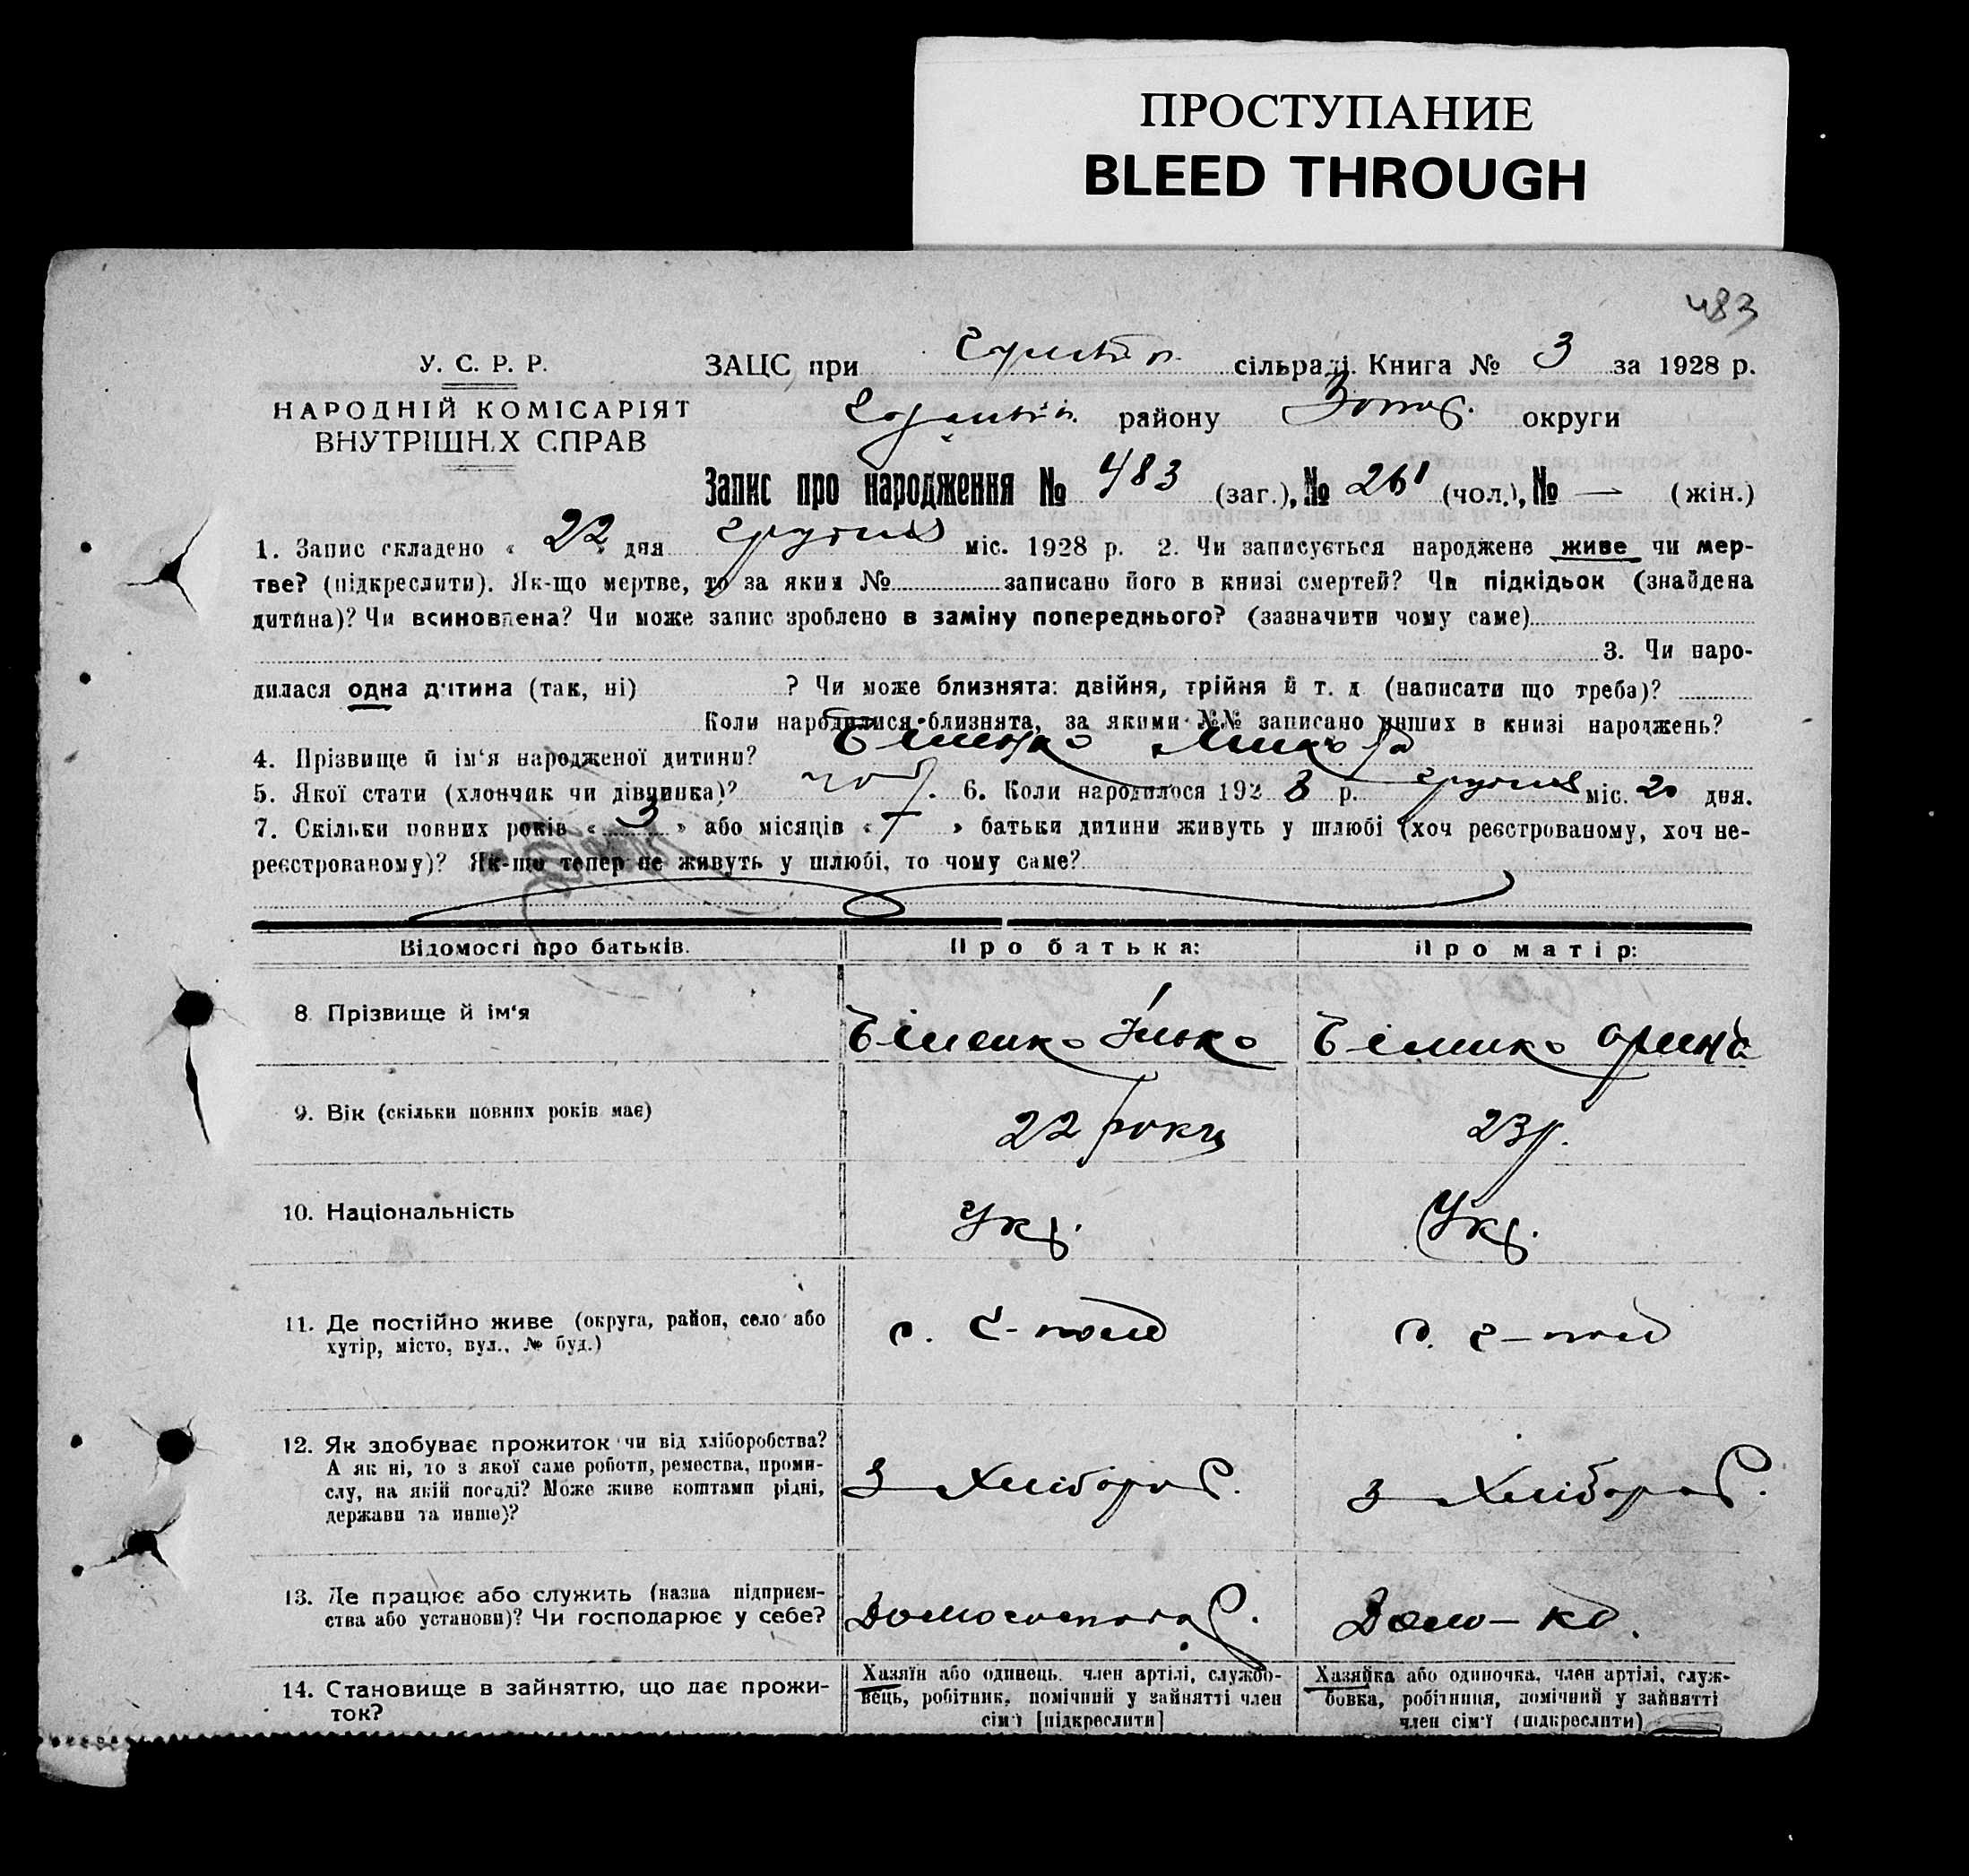 ПРОСТУПАНИЕ
BLEED THROUGH
483
У. С. Р. Р.
НАРОДНІЙ КОМІСАРІЯТ
ВНУТРІШНІХ СПРАВ
ЗАЦС при сільраді. Книга № 3 за 1928 р.
району Зотоф. округи
Запис про народження № 483 (заг.), № 261 (чол.), № — (жін.)
1. Запис складено « 22 » дня грудня міс. 1928 р. 2. Чи записується народжене живе чи мер-
тве? (підкреслити). Як-що мертве, то за яким № записано його в книзі смертей? Чи підкідьок (знайдена
дитина)? Чи всиновлена? Чи може запис зроблено в заміну попереднього? (зазначити чому саме)
3. Чи наро-
дилася одна дитина (так, ні) ? Чи може близнята: двійня, трійня й т. д. (написати що треба)?
Коли народилися близнята, за якими №№ записано инших в книзі народжень?
4. Прізвище й ім'я народженої дитини? Біленко Микола
5. Якої стати (хлопчик чи дівчинка)? чол. 6. Коли народилося 1928 р. грудня міс. 20 дня.
7. Скільки повних років « 3 » або місяців « — » батьки дитини живуть у шлюбі (хоч реєстрованому, хоч не-
реєстрованому)? Як-що тепер не живуть у шлюбі, то чому саме?
Відомості про батьків. Про батька: Про матір:
8. Прізвище й ім'я Біленко Ілько Біленко Орина
9. Вік (скільки повних років має) 22 роки 23 р.
10. Національність Укр. Укр.
11. Де постійно живе (округа, район, село або
хутір, місто, вул., № буд.)
12. Як здобуває прожиток чи від хліборобства?
А як ні, то з якої саме роботи, ремества, проми-
слу, на якій посаді? Може живе коштами рідні,
держави та инше)?
З Хлібороб. З Хлібороб.
13. Де працює або служить (назва підприєм-
ства або установи)? Чи господарює у себе?
Домогоспода Р. Домо-ка.
14. Становище в зайняттю, що дає прожи-
ток?
Хазяїн або одинець, член артілі, службо-
вець, робітник, помічний у зайнятті член
сім'ї [підкреслити]
Хазяйка або одиночка, член артілі, служ-
бовка, робітниця, помічний у зайнятті
член сім'ї (підкреслити)